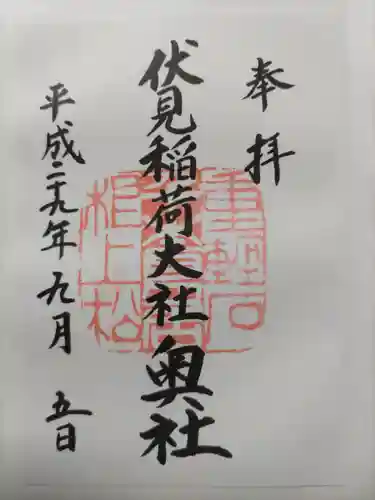 奉拝
伏見稲荷大社奥社
平成二十九年九月五日